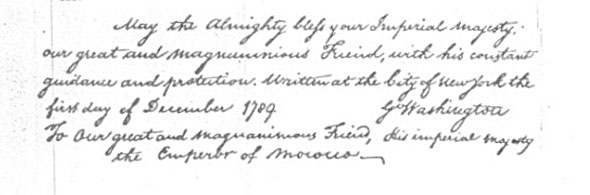 May the Almighty bless your Imperial Majesty,
our great and magnanimous Friend, with his constant
guidance and protection. Written at the City of New York the
first day of December 1789 Go Washington
To Our great and Magnanimous Friend, His imperial majesty
the Emperor of Morocco.